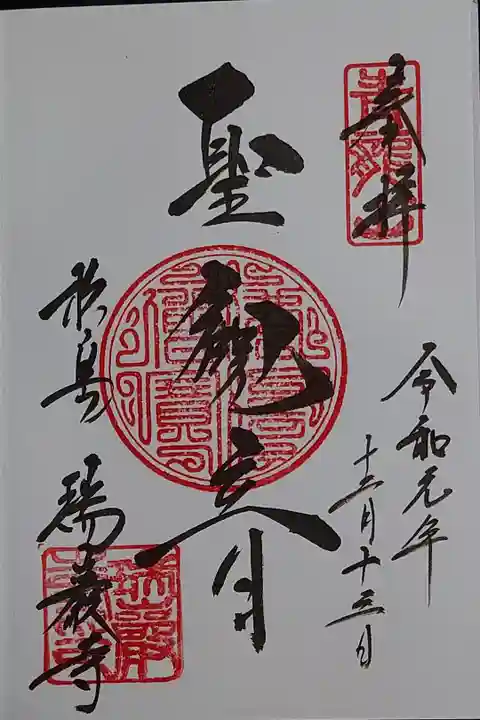 奉拝
令和元年
十二月十三日
聖観音
松島 瑞巌寺